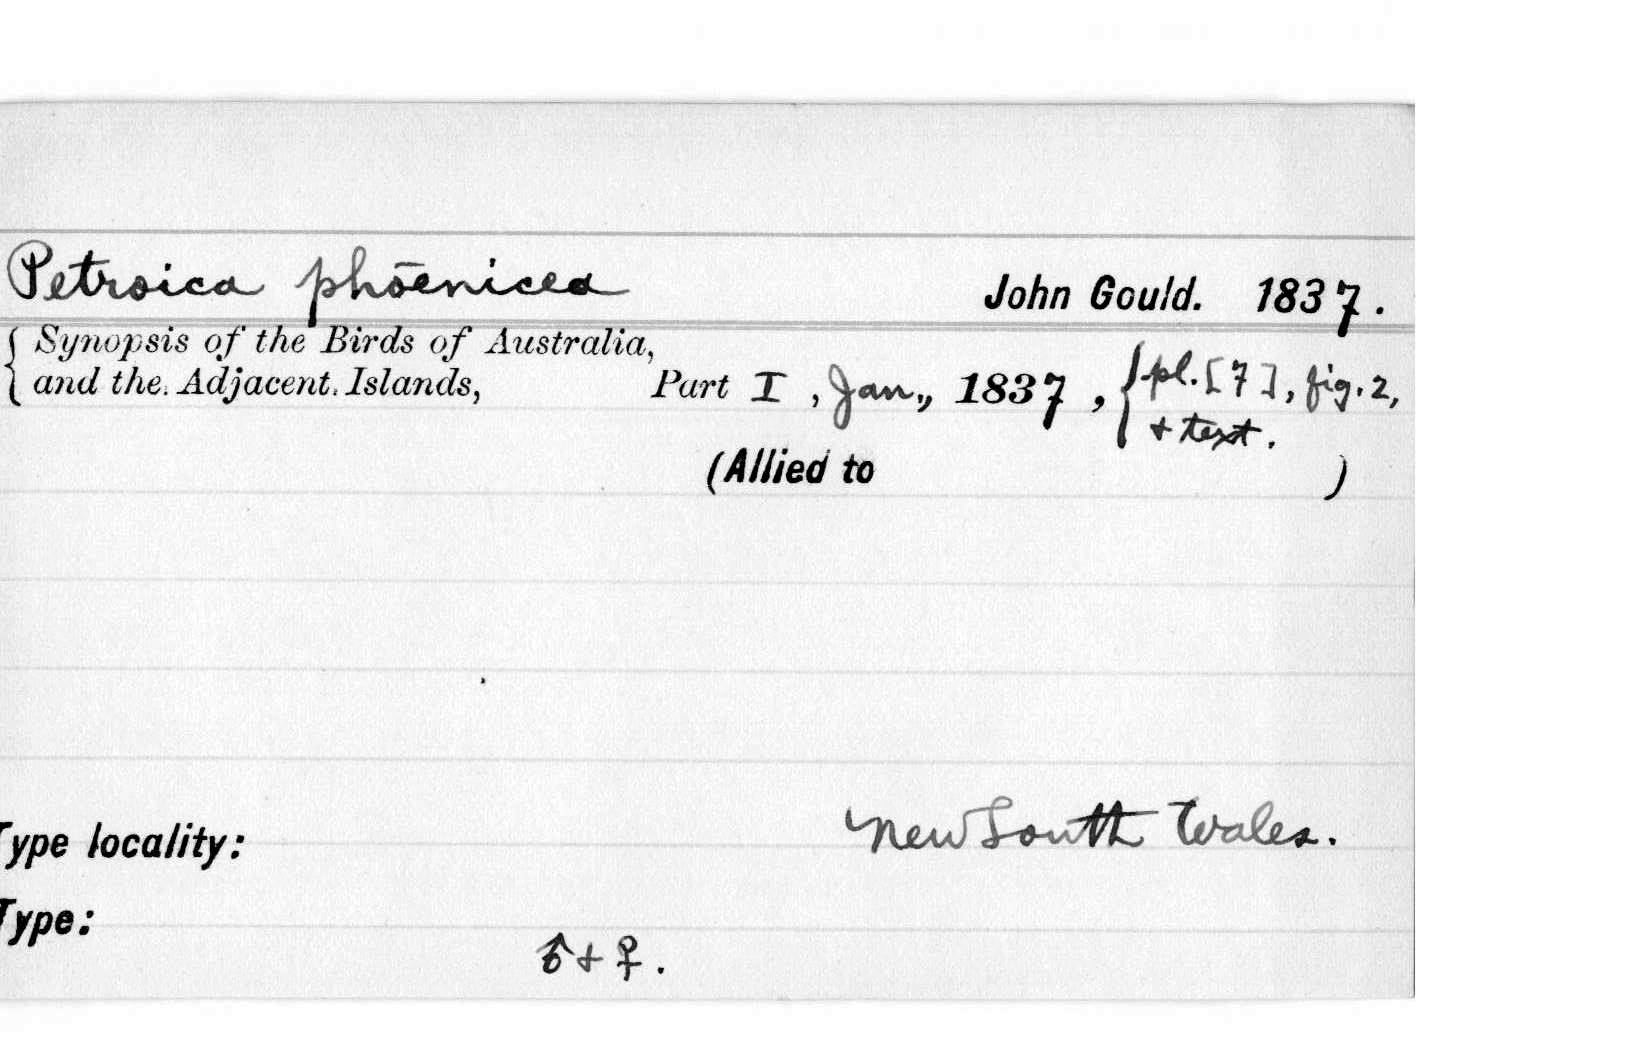 Petroica phōenicea John Gould. 1837.
{ Synopsis of the Birds of Australia,
and the Adjacent Islands, Part I, Jan., 1837, { pl. [7], fig. 2,
+ text.
(Allied to )
Type locality: New South Wales.
Type:
♂ + ♀.